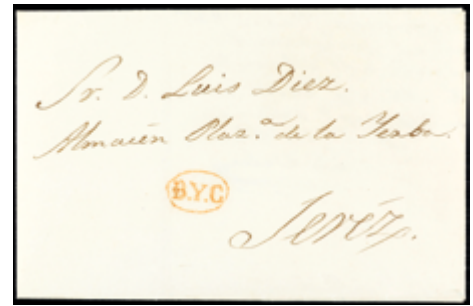 Sr. D. Luis Diez.
Almacén Plaz.ª de la Yerba.
B.Y.C
Jeréz.